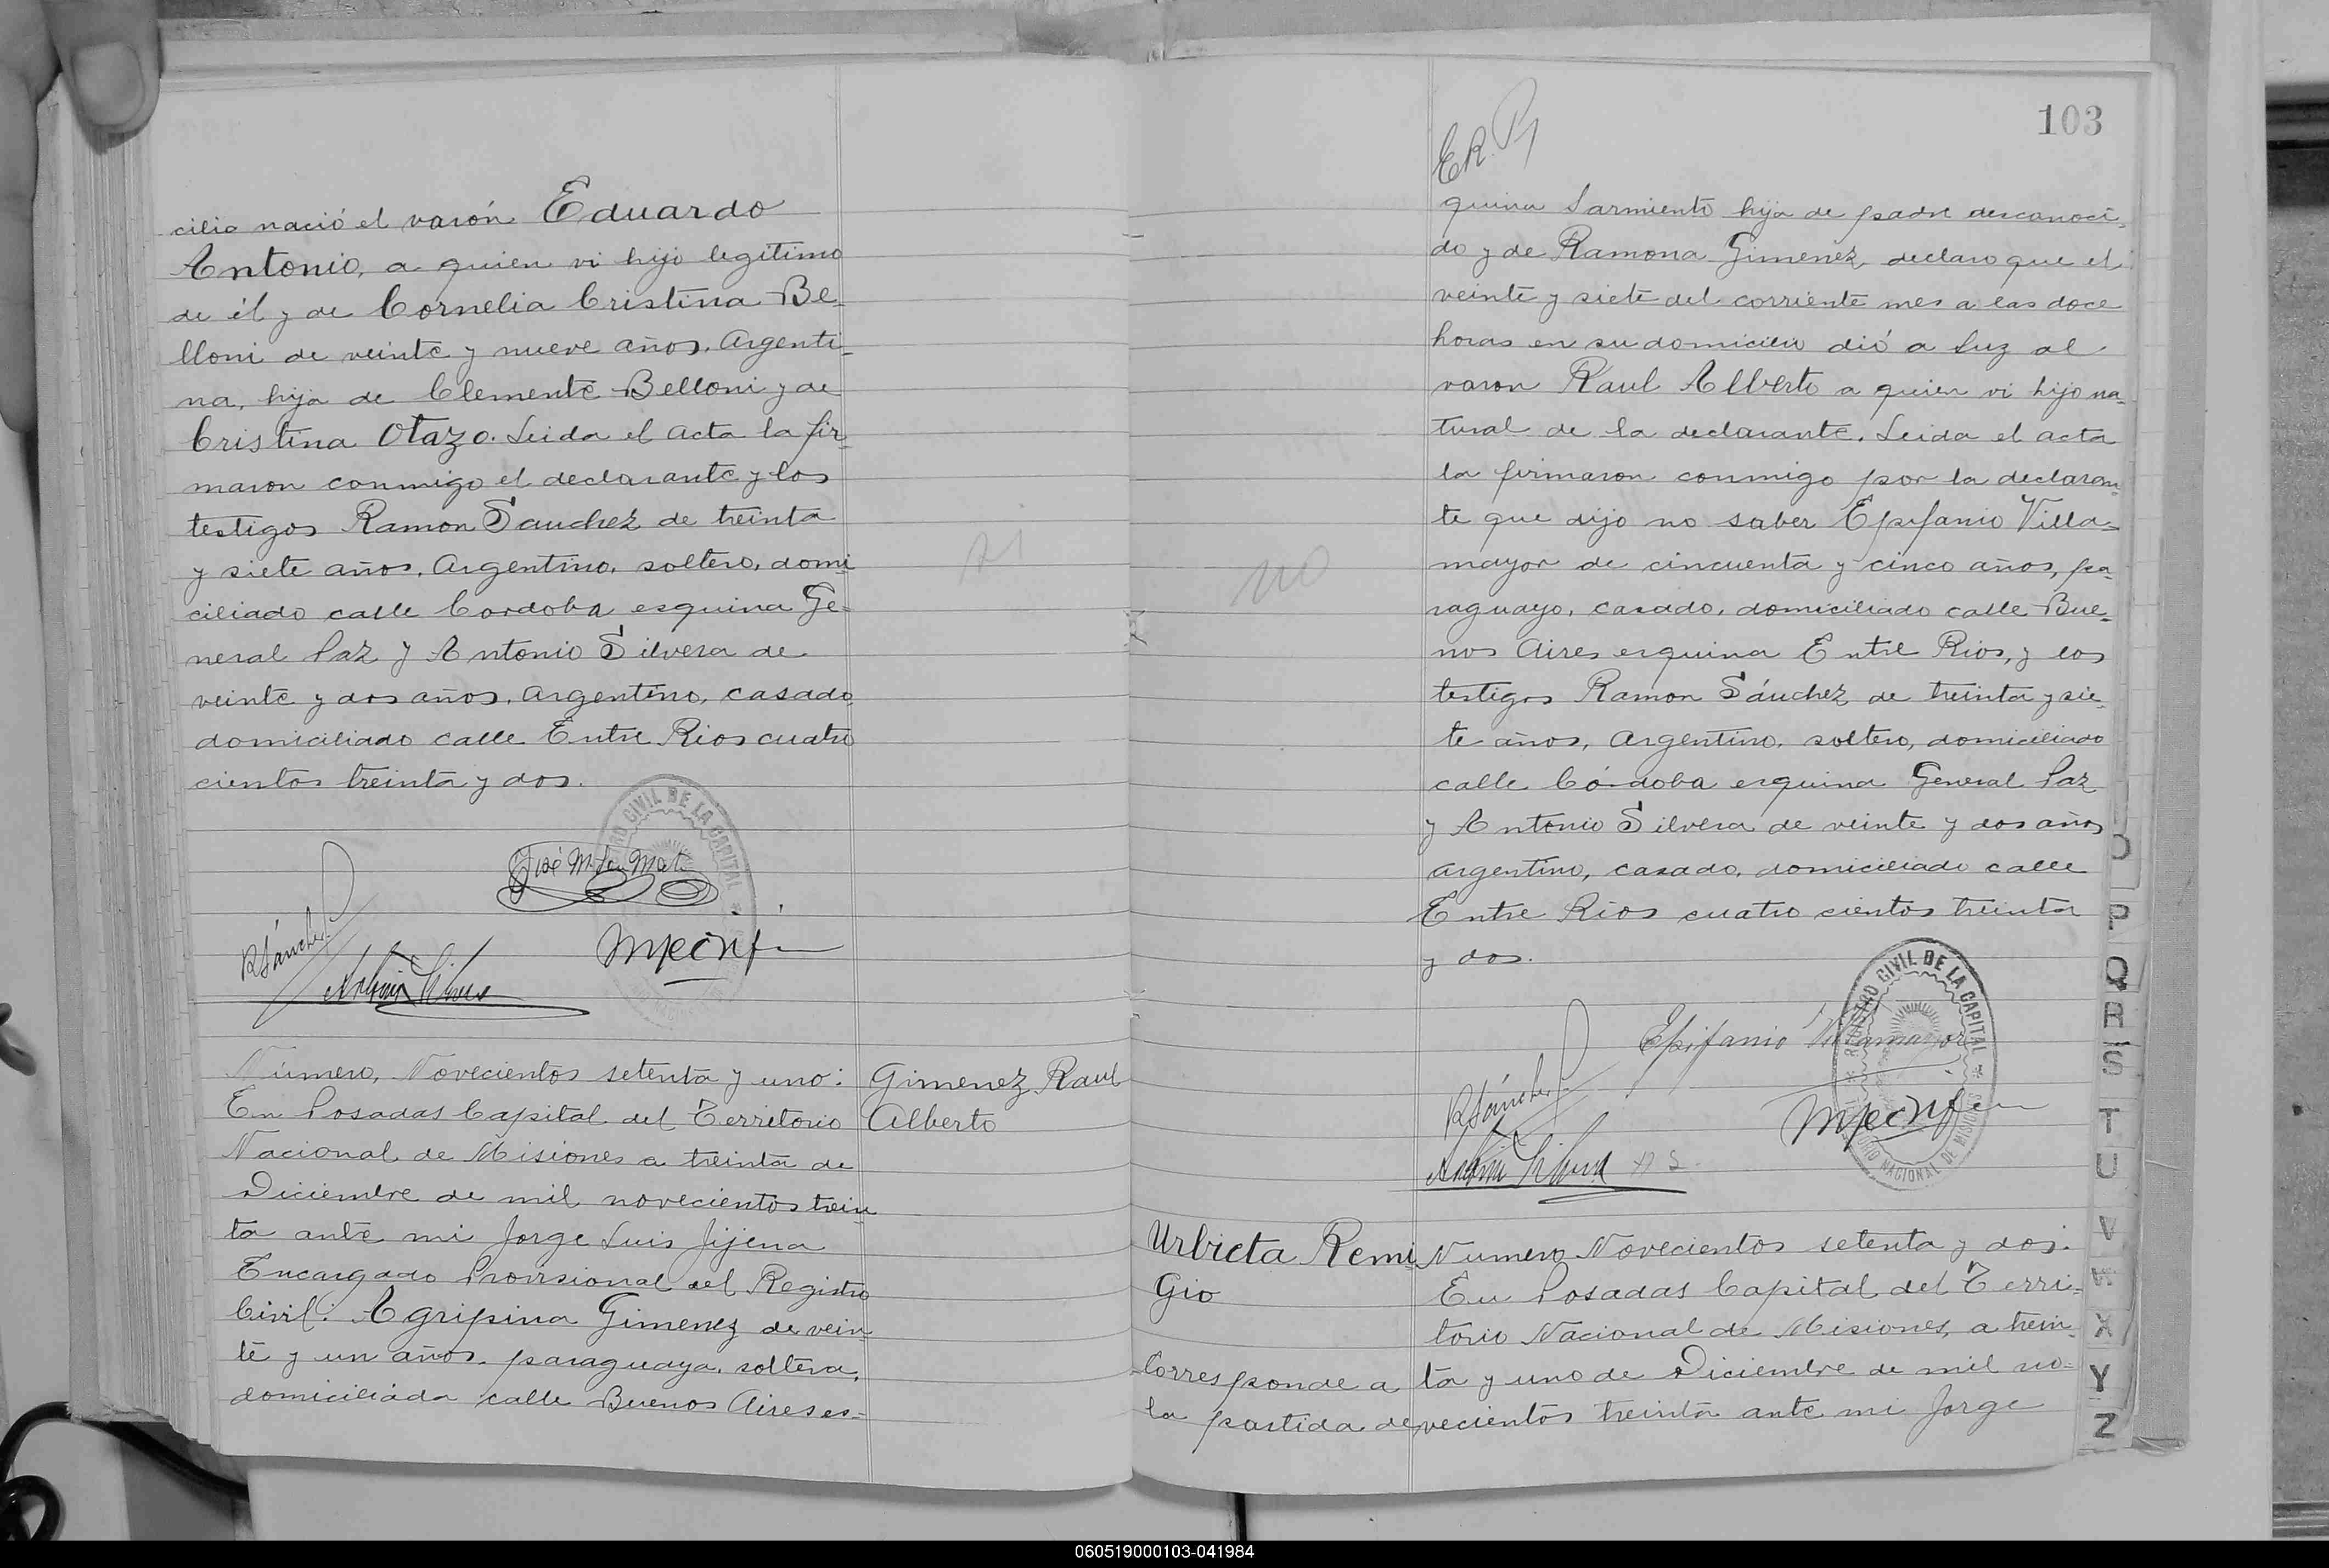 cilio nació el varón Eduardo
Antonio, a quien vi hijo legitimo
de él y de Cornelia Cristina Be-
lloni de veinte y nueve años. Argenti-
na, hija de Clemente Belloni y de
Cristina Otazo. Leida el acta la fir-
maron conmigo el declarante y los
testigos Ramon Sanchez de treinta
y siete años, Argentino, soltero, domi-
ciliado calle Cordoba esquina Ge-
neral Paz y Antonio Silvera de
veinte y dos años, argentino, casado,
domiciliado calle Entre Rios cuatro
cientos treinta y dos.
REGISTRO CIVIL DE LA CAPITAL
R Sánchez
Número, Novecientos setenta y uno:
En Posadas Capital del Territorio
Nacional de Misiones a treinta de
Diciembre de mil novecientos trein-
ta ante mi Jorge Luis Jijena
Encargado Provisional del Registro
Civil: Agripina Gimenez de vein-
te y un años. paraguaya, soltera,
domiciliada calle Buenos Aires es-
Gimenez Raul
Alberto
103
quina Sarmiento hija de padre desconoci-
do y de Ramona Gimenez, declaro que el
veinte y siete del corriente mes a las doce
horas en su domicilio dió a luz al
varon Raul Alberto a quien vi hijo na-
tural de la declarante. Leida el acta
la firmaron conmigo por la declaran-
te que dijo no saber Epifanio Villa-
mayor de cincuenta y cinco años, pa-
raguayo, casado, domiciliado calle Bue-
nos Aires esquina Entre Rios, y los
testigos Ramon Sánchez de treinta y sie-
te años, Argentino, soltero, domiciliado
calle Córdoba esquina General Paz
y Antonio Silvera de veinte y dos años
argentino, casado, domiciliado calle
Entre Rios cuatro cientos treinta
y dos.
no
Epifanio Villamayor
REGISTRO CIVIL DE LA CAPITAL
TERRITORIO NACIONAL DE MISIONES
R Sánchez
Urbieta Remi
Gio
Corresponde a
la partida de
Numero Novecientos setenta y dos.
En Posadas Capital del Terri-
torio Nacional de Misiones, a trein-
ta y uno de Diciembre de mil no-
vecientos treinta ante mi Jorge
O
P
Q
R
S
T
U
V
W
X
Y
Z
060519000103-041984